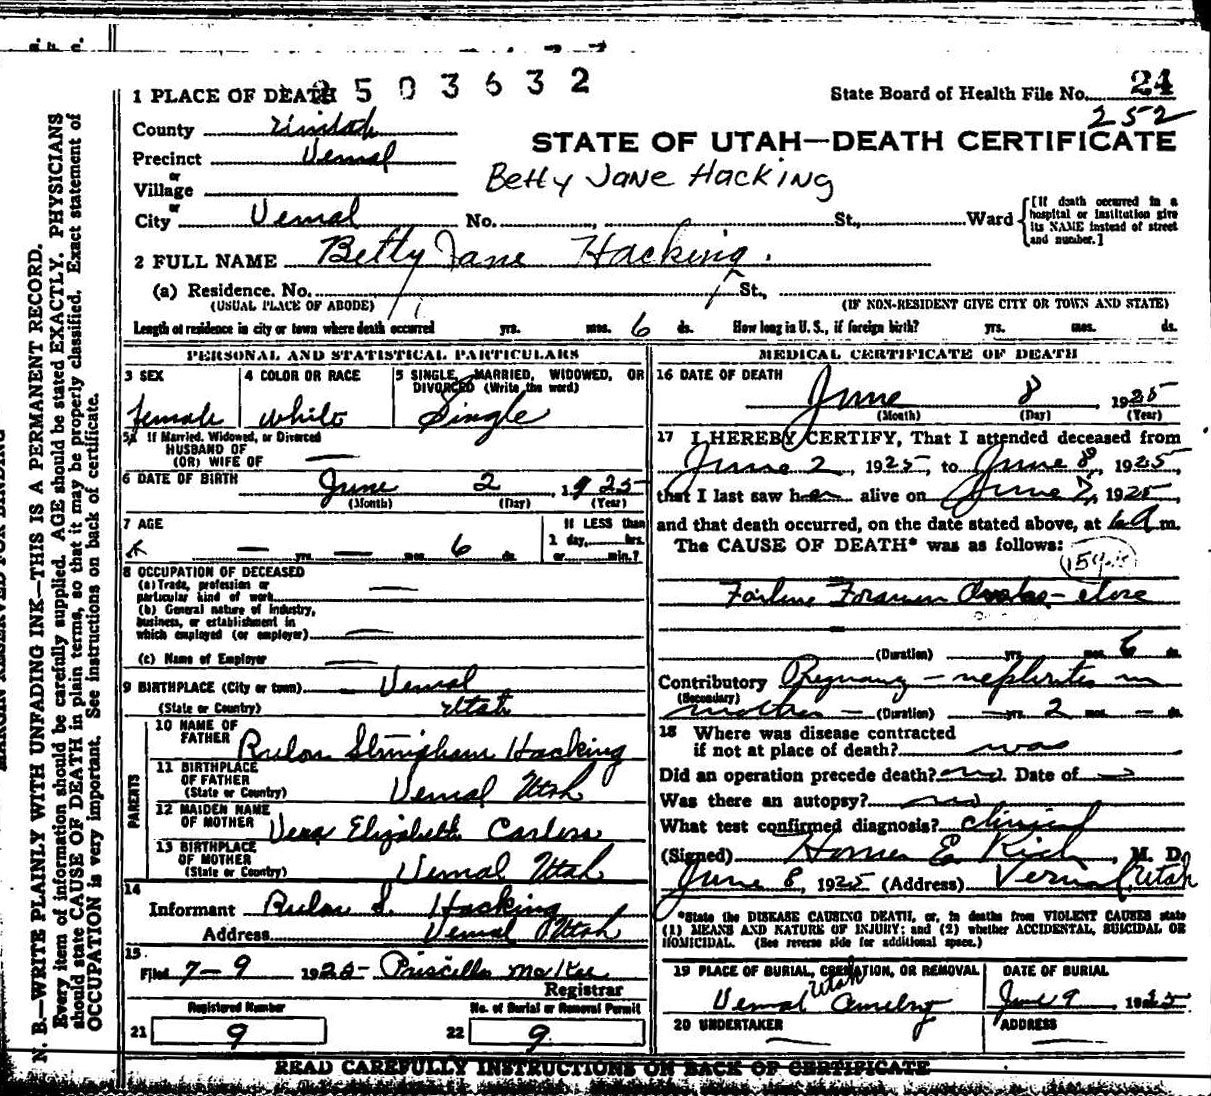 2503632
1 PLACE OF DEATH
State Board of Health File No. 24
252
County Uintah
STATE OF UTAH—DEATH CERTIFICATE
Precinct Vernal
or
Village
Betty Jane Hacking
or
City Vernal No. , St., Ward
[If death occurred in a hospital or institution give its NAME instead of street and number.]
2 FULL NAME Betty Jane Hacking.
(a) Residence. No. St.,
(USUAL PLACE OF ABODE) (IF NON-RESIDENT GIVE CITY OR TOWN AND STATE)
Length of residence in city or town where death occurred yrs. mos. 6 ds. How long in U. S., if foreign birth? yrs. mos. ds.
PERSONAL AND STATISTICAL PARTICULARS
3 SEX
female
4 COLOR OR RACE
white
5 SINGLE, MARRIED, WIDOWED, OR
DIVORCED (Write the word)
Single
5A If Married, Widowed, or Divorced
HUSBAND OF
(OR) WIFE OF —
6 DATE OF BIRTH June 2, 1925
(Month) (Day) (Year)
7 AGE
— yrs. — mos. 6 ds.
If LESS than
1 day, hrs.
or min.?
8 OCCUPATION OF DECEASED
(a) Trade, profession or
particular kind of work —
(b) General nature of industry,
business, or establishment in
which employed (or employer) —
(c) Name of Employer —
9 BIRTHPLACE (City or town) Vernal
(State or Country) Utah
PARENTS
10 NAME OF
FATHER Rulon Stringham Hacking
11 BIRTHPLACE
OF FATHER
(State or Country) Vernal Utah
12 MAIDEN NAME
OF MOTHER Vera Elizabeth
13 BIRTHPLACE
OF MOTHER
(State or Country) Vernal Utah
14
Informant Rulon S. Hacking
Address Vernal Utah
15
Filed 7-9 1925 Priscilla McKee
Registrar
Registered Number
21 9
No. of Burial or Removal Permit
22 9
MEDICAL CERTIFICATE OF DEATH
16 DATE OF DEATH
June 8 1925
(Month) (Day) (Year)
17 I HEREBY CERTIFY, That I attended deceased from
June 2, 1925, to June 8, 1925
that I last saw her alive on June 7, 1925,
and that death occurred, on the date stated above, at 6 a m.
The CAUSE OF DEATH* was as follows:
Foramen
(Duration) yrs. mos. 6 ds.
Contributory Pregnancy - nephritis in
(Secondary)
mother - (Duration) — yrs. 2 mos. — ds.
18 Where was disease contracted
if not at place of death? was
Did an operation precede death? no Date of —
Was there an autopsy? no
What test confirmed diagnosis? clinical
(Signed) Homer E. Rich, M. D.
June 8, 1925 (Address) Vernal, Utah
*State the DISEASE CAUSING DEATH, or, in deaths from VIOLENT CAUSES state
(1) MEANS AND NATURE OF INJURY; and (2) whether ACCIDENTAL, SUICIDAL OR
HOMICIDAL. (See reverse side for additional space.)
19 PLACE OF BURIAL, CREMATION, OR REMOVAL
Vernal Utah Cemetery
DATE OF BURIAL
June 9, 1925
20 UNDERTAKER
—
ADDRESS
—
READ CAREFULLY INSTRUCTIONS ON BACK OF CERTIFICATE
MARGIN RESERVED FOR BINDING
N. B.—WRITE PLAINLY WITH UNFADING INK—THIS IS A PERMANENT RECORD.
Every item of information should be carefully supplied. AGE should be stated EXACTLY. PHYSICIANS
should state CAUSE OF DEATH in plain terms, so that it may be properly classified. Exact statement of
OCCUPATION is very important. See instructions on back of certificate.